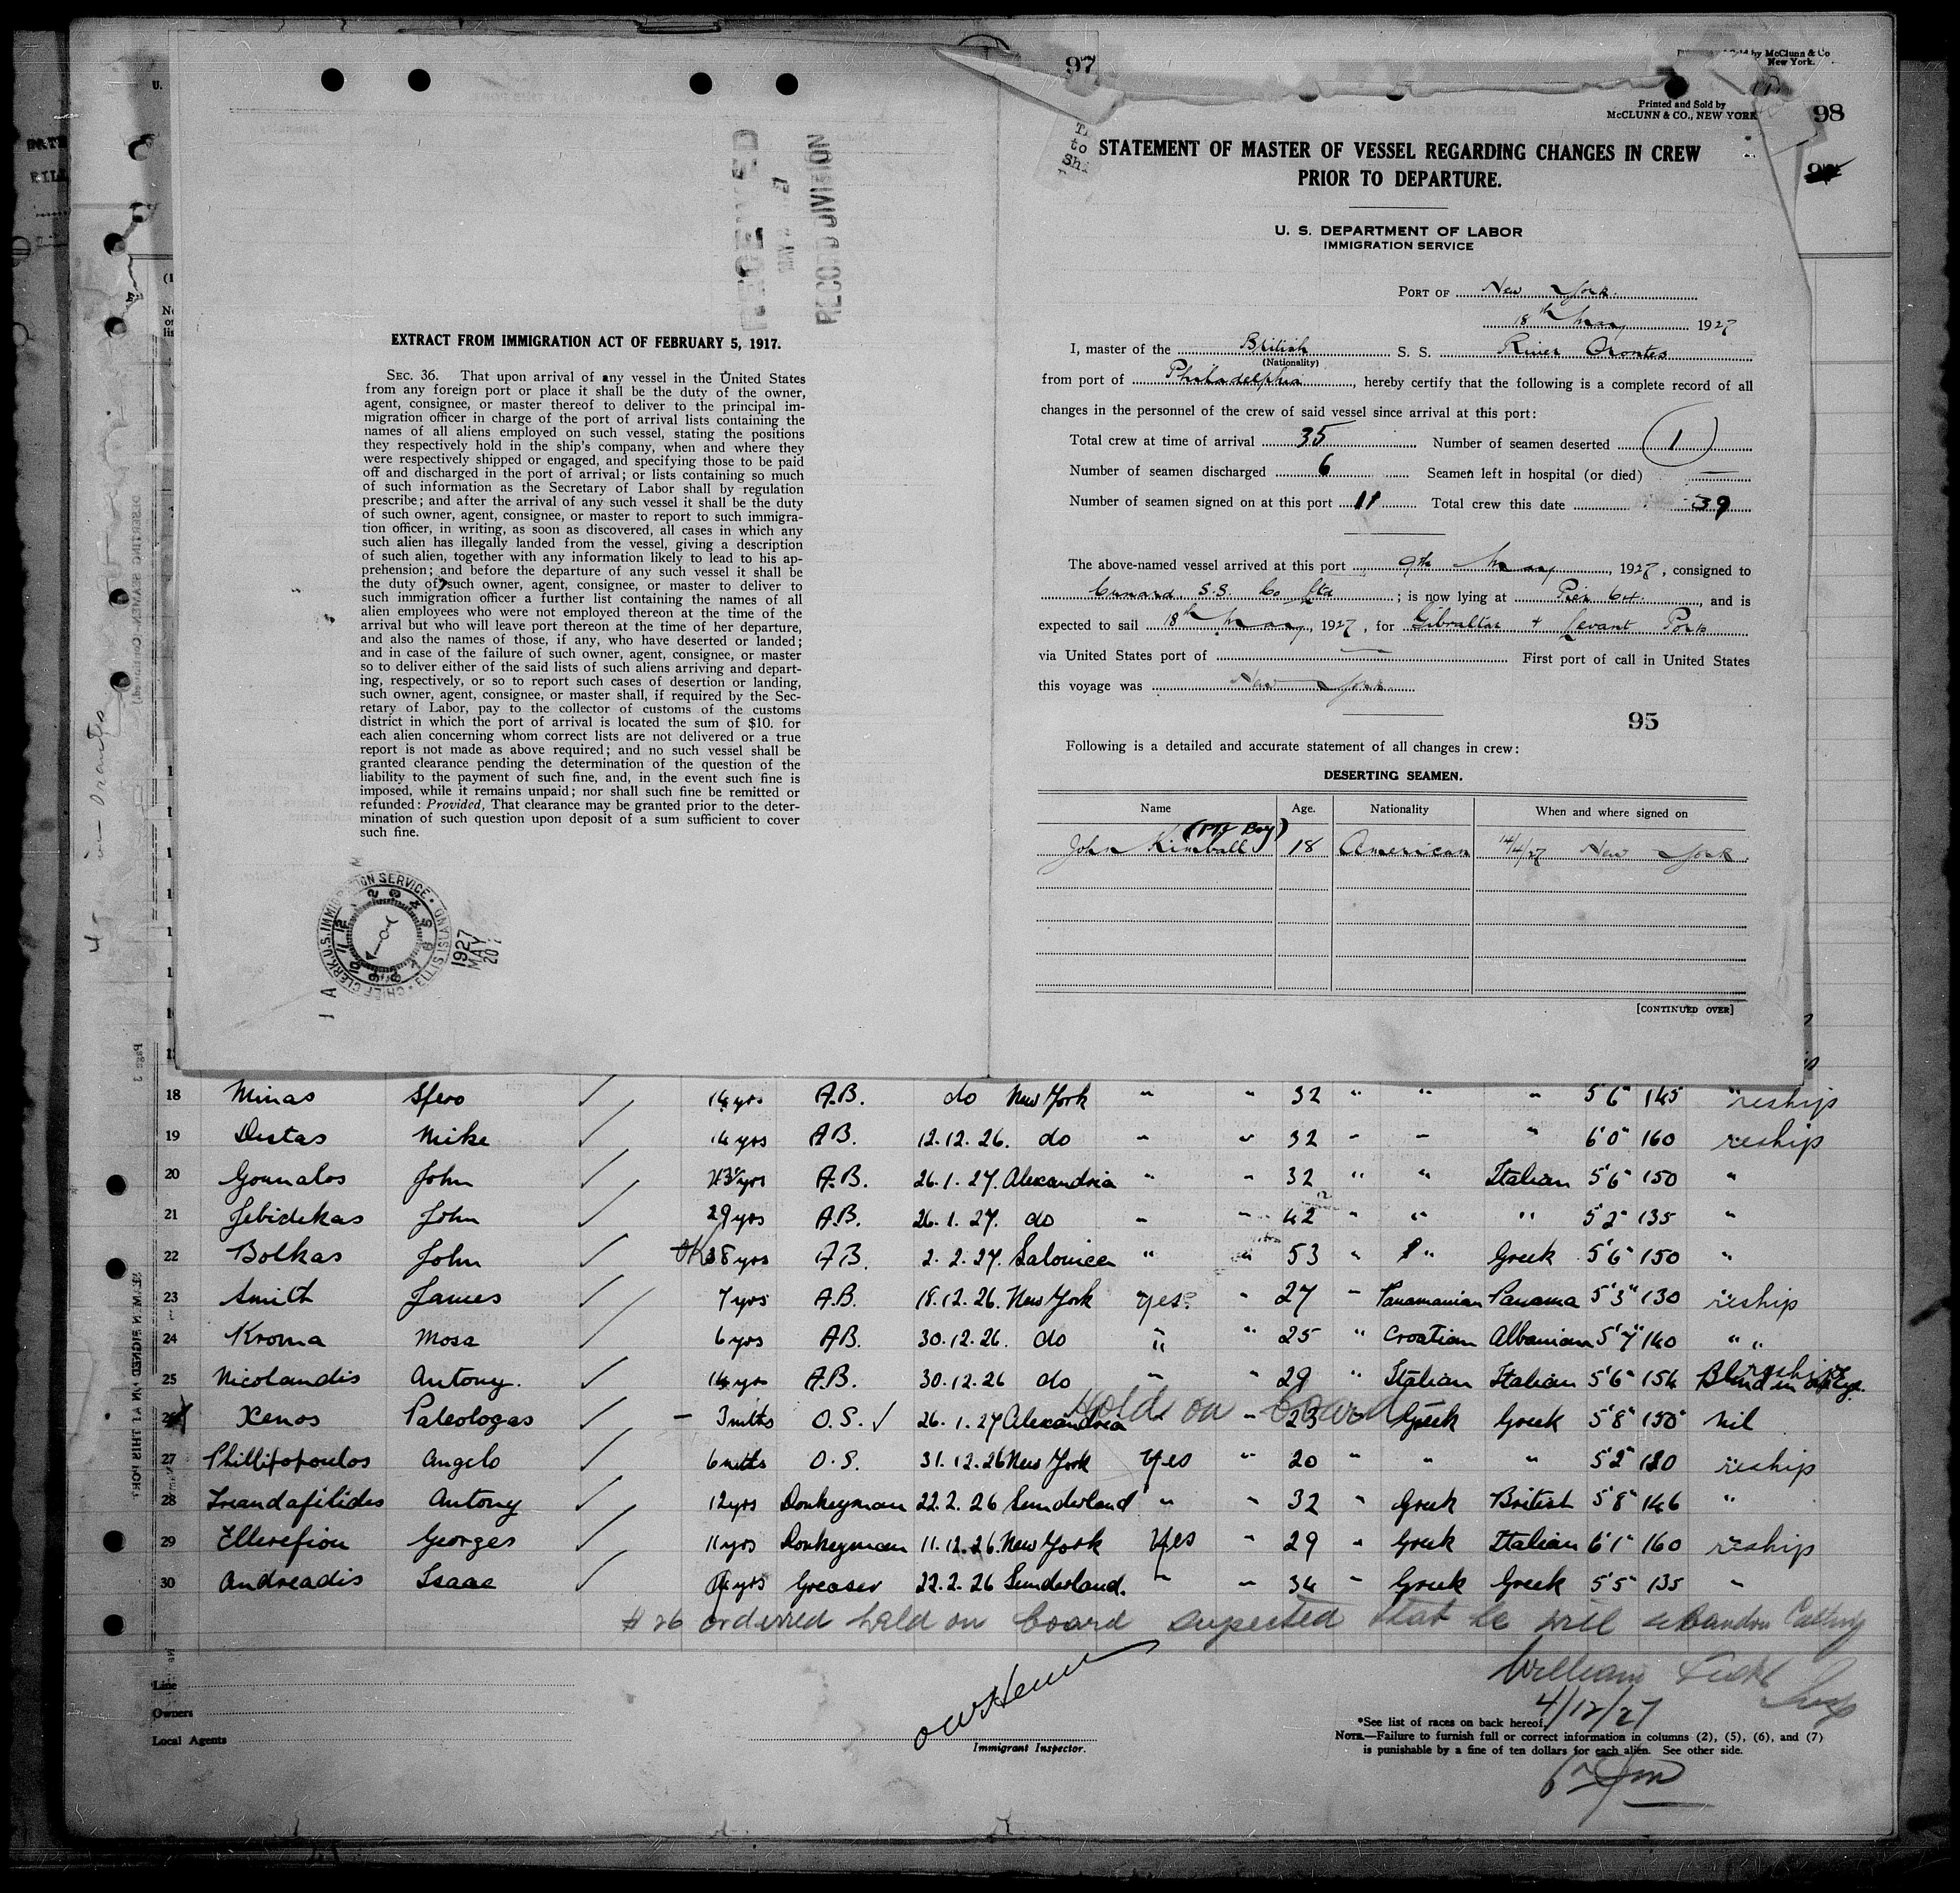 97
98
95
Printed and Sold by McClunn & Co
New York.
Printed and Sold by
McCLUNN & CO., NEW YORK
RECEIVED
MAY
RECORD DIVISION
EXTRACT FROM IMMIGRATION ACT OF FEBRUARY 5, 1917.
SEC. 36. That upon arrival of any vessel in the United States
from any foreign port or place it shall be the duty of the owner,
agent, consignee, or master thereof to deliver to the principal im-
migration officer in charge of the port of arrival lists containing the
names of all aliens employed on such vessel, stating the positions
they respectively hold in the ship's company, when and where they
were respectively shipped or engaged, and specifying those to be paid
off and discharged in the port of arrival; or lists containing so much
of such information as the Secretary of Labor shall by regulation
prescribe; and after the arrival of any such vessel it shall be the duty
of such owner, agent, consignee, or master to report to such immigra-
tion officer, in writing, as soon as discovered, all cases in which any
such alien has illegally landed from the vessel, giving a description
of such alien, together with any information likely to lead to his ap-
prehension; and before the departure of any such vessel it shall be
the duty of such owner, agent, consignee, or master to deliver to
such immigration officer a further list containing the names of all
alien employees who were not employed thereon at the time of the
arrival but who will leave port thereon at the time of her departure,
and also the names of those, if any, who have deserted or landed;
and in case of the failure of such owner, agent, consignee, or master
so to deliver either of the said lists of such aliens arriving and depart-
ing, respectively, or so to report such cases of desertion or landing,
such owner, agent, consignee, or master shall, if required by the Sec-
retary of Labor, pay to the collector of customs of the customs
district in which the port of arrival is located the sum of $10. for
each alien concerning whom correct lists are not delivered or a true
report is not made as above required; and no such vessel shall be
granted clearance pending the determination of the question of the
liability to the payment of such fine, and, in the event such fine is
imposed, while it remains unpaid; nor shall such fine be remitted or
refunded: Provided, That clearance may be granted prior to the deter-
mination of such question upon deposit of a sum sufficient to cover
such fine.
CHIEF CLERK, U.S. IMMIGRATION SERVICE · ELLIS ISLAND
1927
MAY
20
STATEMENT OF MASTER OF VESSEL REGARDING CHANGES IN CREW
PRIOR TO DEPARTURE.
U. S. DEPARTMENT OF LABOR
IMMIGRATION SERVICE
PORT OF New York.
18th May 1927
I, master of the British S. S. River Orontes
(Nationality)
from port of Philadelphia, hereby certify that the following is a complete record of all
changes in the personnel of the crew of said vessel since arrival at this port:
Total crew at time of arrival 35 Number of seamen deserted 1
Number of seamen discharged 6 Seamen left in hospital (or died) —
Number of seamen signed on at this port 11 Total crew this date 39
The above-named vessel arrived at this port 9th May, 1927, consigned to
Cunard S.S. Co Ltd; is now lying at Pier 64, and is
expected to sail 18th May, 1927, for Gibraltar + Levant Ports
via United States port of — First port of call in United States
this voyage was New York
95
Following is a detailed and accurate statement of all changes in crew:
DESERTING SEAMEN.
Name Age. Nationality When and where signed on
John Kimball 18 American 14/4/27 New York.
[CONTINUED OVER]
18 Minas Spero 14 yrs A.B. do New York " " 32 " " " 5'6" 145 reship
19 Distas Mike 14 yrs A.B. 12.12.26. do " " 32 " " " 6'0" 160 reship
20 Gounalos John yrs A.B. 26.1.27. Alexandria " " 32 " " Italian 5'6" 150 "
21 Jebidekas John 29 yrs A.B. 26.1.27. do " " 42 " " " 5'2" 135 "
22 Bolkas John 38 yrs A.B. 2.2.27. Salonica " " 53 " " Greek 5'6" 150 "
23 Smith James 7 yrs A.B. 18.12.26. New York Yes. " 27 " Panamanian Panama 5'3" 130 reship
24 Kroma Mosa 6 yrs A.B. 30.12.26. do " " 25 " Croatian Albanian 5'7" 140 " "
25 Nicolandis Antony. 14 yrs A.B. 30.12.26 do " " 29 " Italian Italian 5'6" 154 reship Blind in eye.
Hold on board
26 Xenos Paleologas 3 mths O.S. 26.1.27 Alexandria " " 23 " Greek Greek 5'8" 150 nil
27 Phillipopoulos Angelo 6 mths O.S. 31.12.26 New York Yes " 20 " " " 5'2" 120 reship
28 Treandafilides Antony 12 yrs Donkeyman 22.2.26 Sunderland " " 32 " Greek British 5'8" 146 "
29 Ellerefiou Georges 11 yrs Donkeyman 11.12.26. New York Yes " 29 " Greek Italian 6'1" 160 reship
30 Andreadis Isaac yrs Greaser 22.2.26 Sunderland. " " 34 " Greek Greek 5'5" 135 "
# 26 ordered held on board suspected that he will abandon Calling
William Insp
4/12/27
Line
Owners
Local Agents
Immigrant Inspector.
*See list of races on back hereof.
NOTE.—Failure to furnish full or correct information in columns (2), (5), (6), and (7)
is punishable by a fine of ten dollars for each alien. See other side.